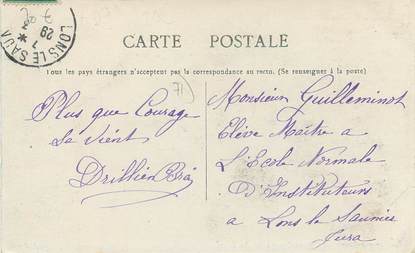 LONS LE SAUN
7 *
29
CARTE POSTALE
Tous les pays étrangers n'acceptent pas la correspondance au recto. (Se renseigner à la poste)
71
Plus que Courage
La Vient
Drillien
Monsieur Guilleminot
Elève Maître a
L'Ecole Normale
D'Instituteurs
a Lons le Saunier
Jura